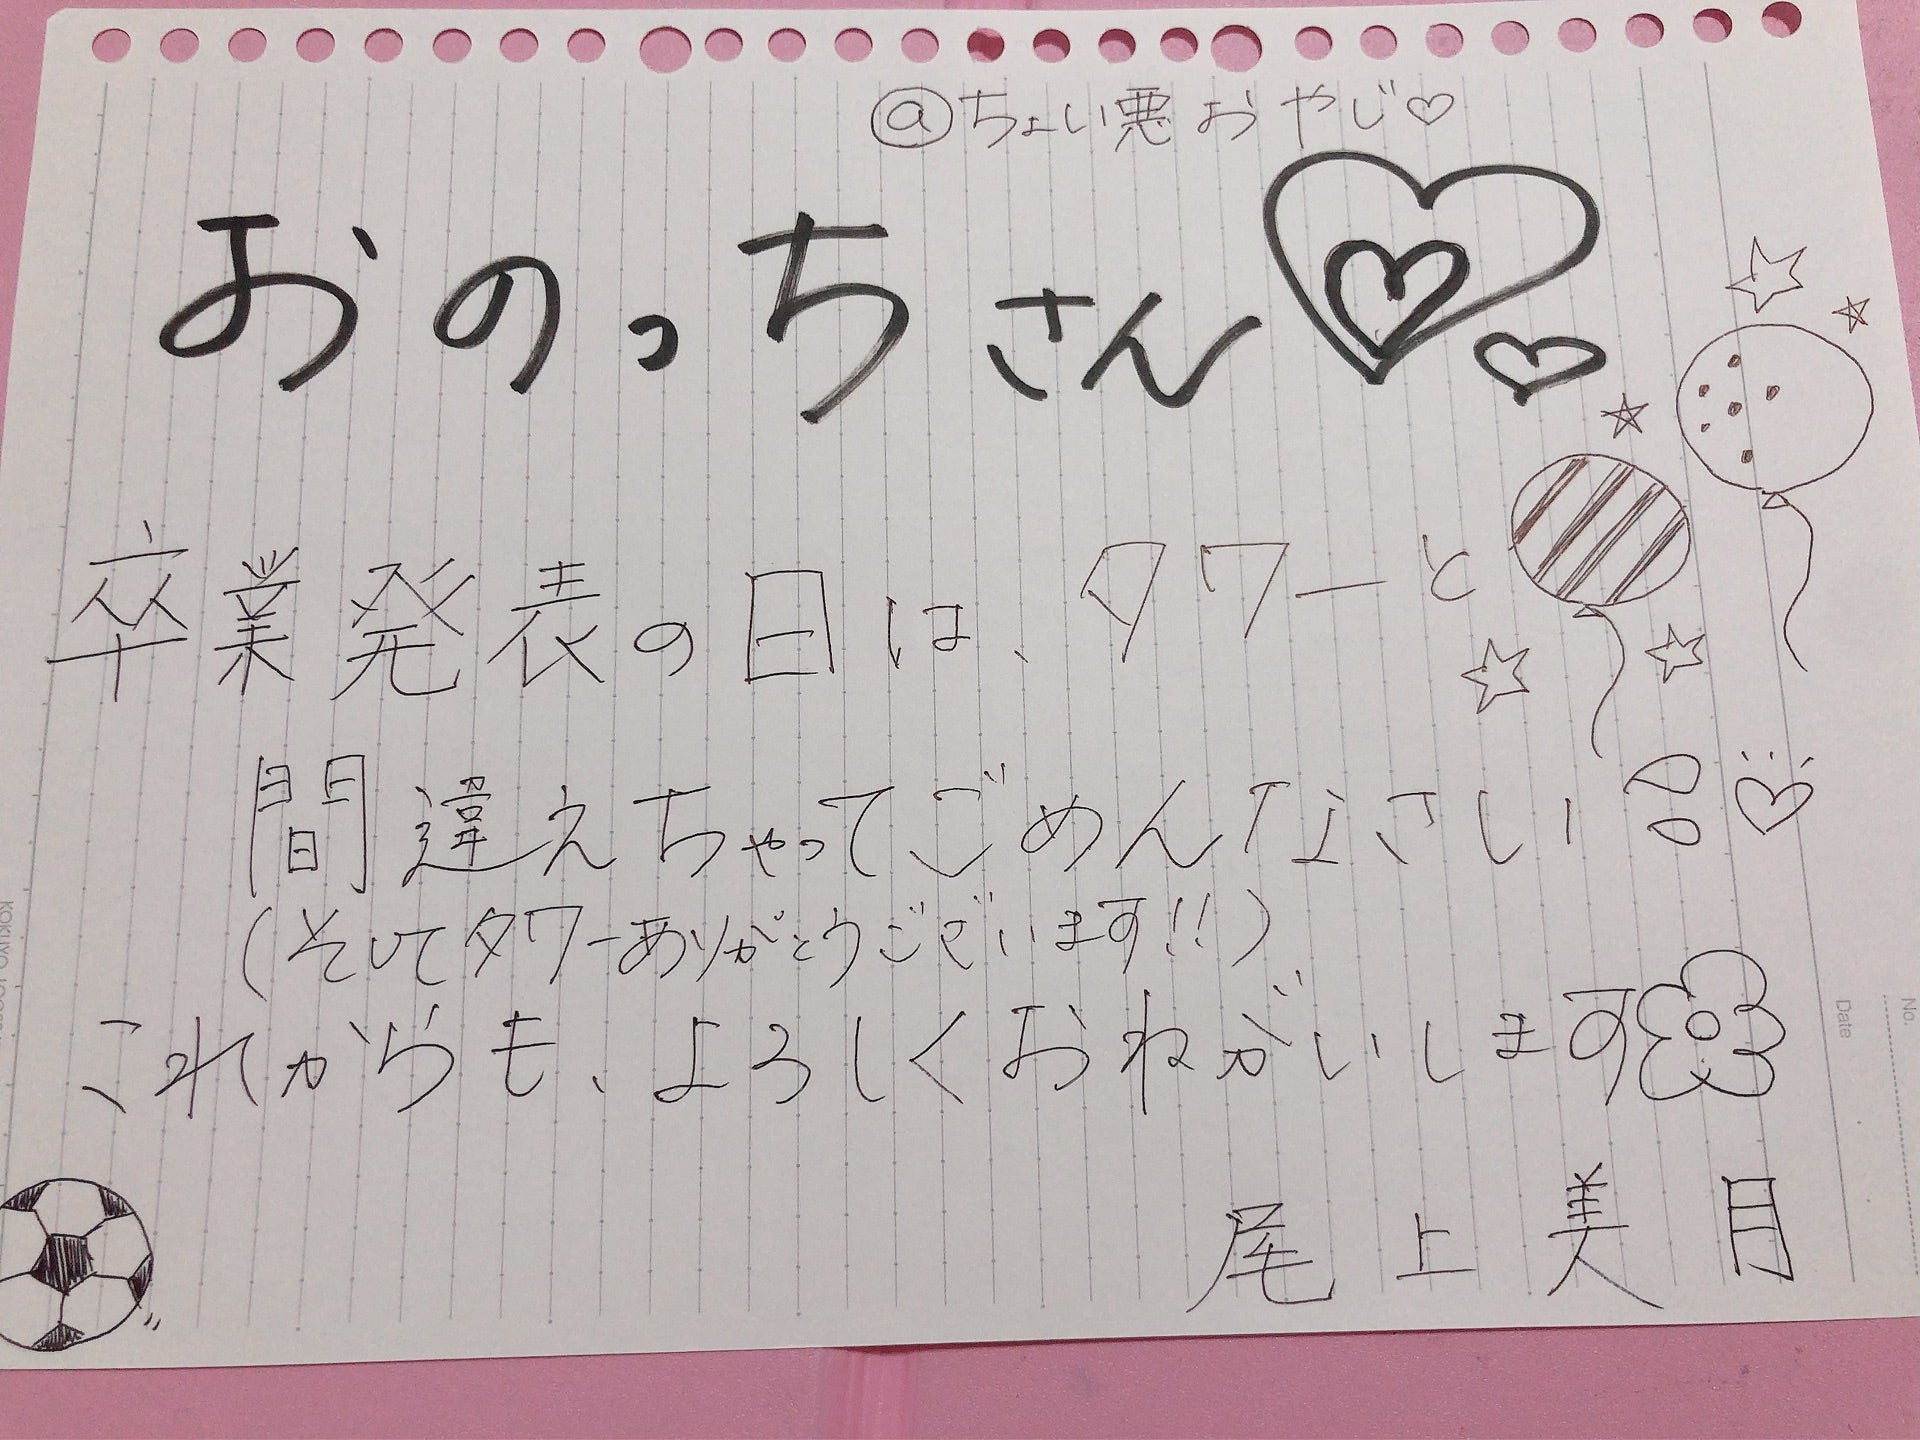 @ちょい悪おやじ♡
おのっちさん♡♡
卒業発表の日は、タワーと
間違えちゃってごめんなさい!♡
(そしてタワーありがとうございます!!)
これからも、よろしくおねがいします
尾上美月
No.
Date